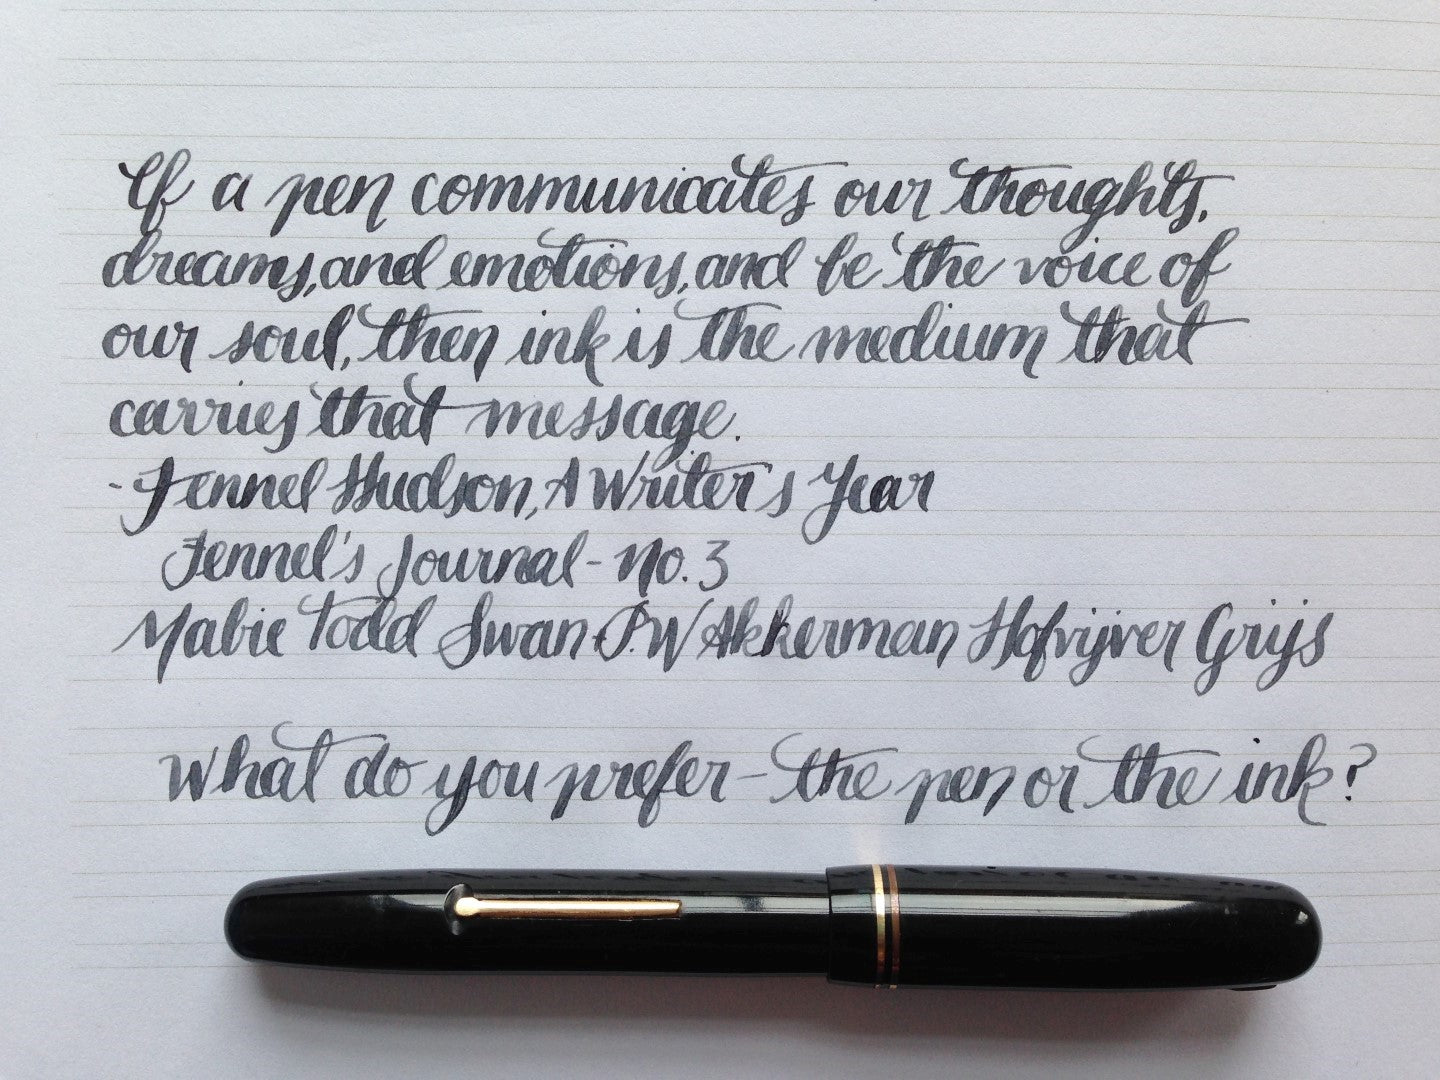 If a pen communicates our thoughts,
dreams, and emotions, and be the voice of
our soul, then ink is the medium that
carries that message.
- Fennel Hudson, A Writer's Year
Fennel's Journal - No. 3
Mabie Todd Swan. P.W Akkerman Hofvijver Grijs
What do you prefer - the pen or the ink?